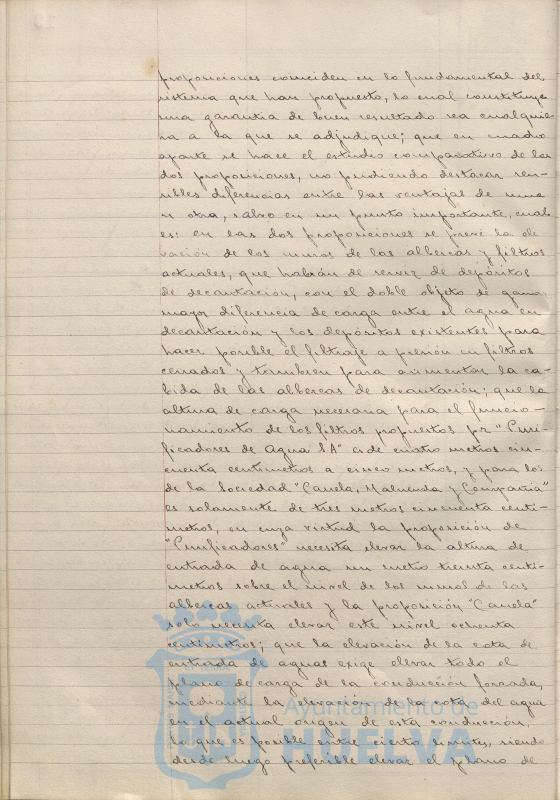 proposiciones coinciden en lo fundamental del
sistema que han propuesto, lo cual constituye
una garantía de buen resultado sea cualquie-
ra a la que se adjudique; que en cuadro
aparte se hace el estudio comparativo de las
dos proposiciones, no pudiendo destacar sen-
sibles diferencias entre las ventajas de una
u otra, salvo en un punto importante, cual
es: en las dos proposiciones se prevé la ele
vación de los muros de las albercas y filtros
actuales, que habrán de servir de depósitos
de decantación, con el doble objeto de ganar
mayor diferencia de carga entre el agua en
decantación y los depósitos existentes para
hacer posible el filtraje a presión en filtros
cerrados y tambien para aumentar la ca-
bida de las albercas de decantación; que la
altura de carga necesaria para el funcio-
namiento de los filtros propuestos por "Puri-
ficadores de Agua S.A" es de cuatro metros cin-
cuenta centimetros a cinco metros, y para los
de la Sociedad "Canela, Maluenda y Compañia"
es solamente de tres metros cincuenta centi-
metros, en cuya virtud la proposición de
"Purificadores" necesita elevar la altura de
entrada de agua un metro treinta centí-
metros sobre el nivel de los muros de las
albercas actuales y la proposición "Canela"
solo necesita elevar este nivel ochenta
centimetros; que la elevación de la cota de
entrada de aguas exige elevar todo el
plano de carga de la conducción forzada,
mediante la elevación de la cota del agua
en el actual origen de esta conducción,
lo que es posible entre cierto limites, siendo
desde luego preferible elevar el plano de
Ayuntamiento de
HUELVA